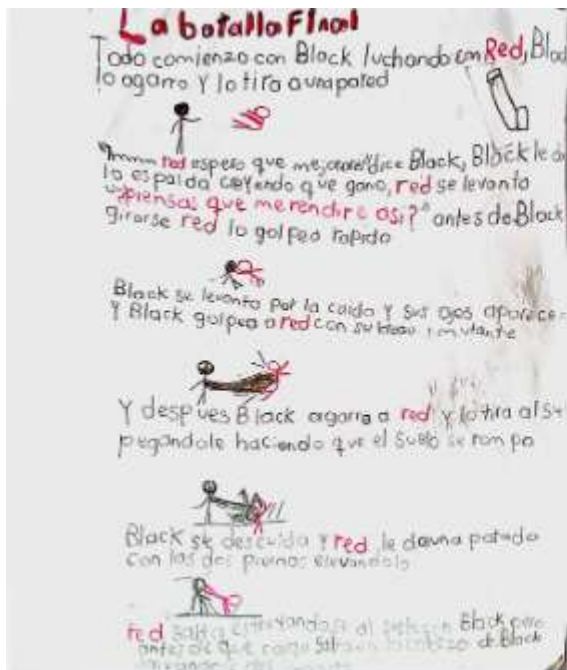 La batalla Final
Todo comienza con Black luchando con Red, Blac
lo agarra Y lo tira a una pared
red espero que me dice Black, Black le d
la espalda creyendo que gano, red se levanta
"piensas que me rendire asi?" antes de Black
girarse red lo golpea rapido
Black se levanta por la caida Y sus ojos aparece
Y Black golpea a red con su brazo mutante
Y despues Black agarra a red y lo tira al Su
pegandole haciendo que el Suelo se rompa
Black se descuida Y red le da una patada
con las dos piernas elevandolo
red Salta Black pero
antes de que caiga de Black